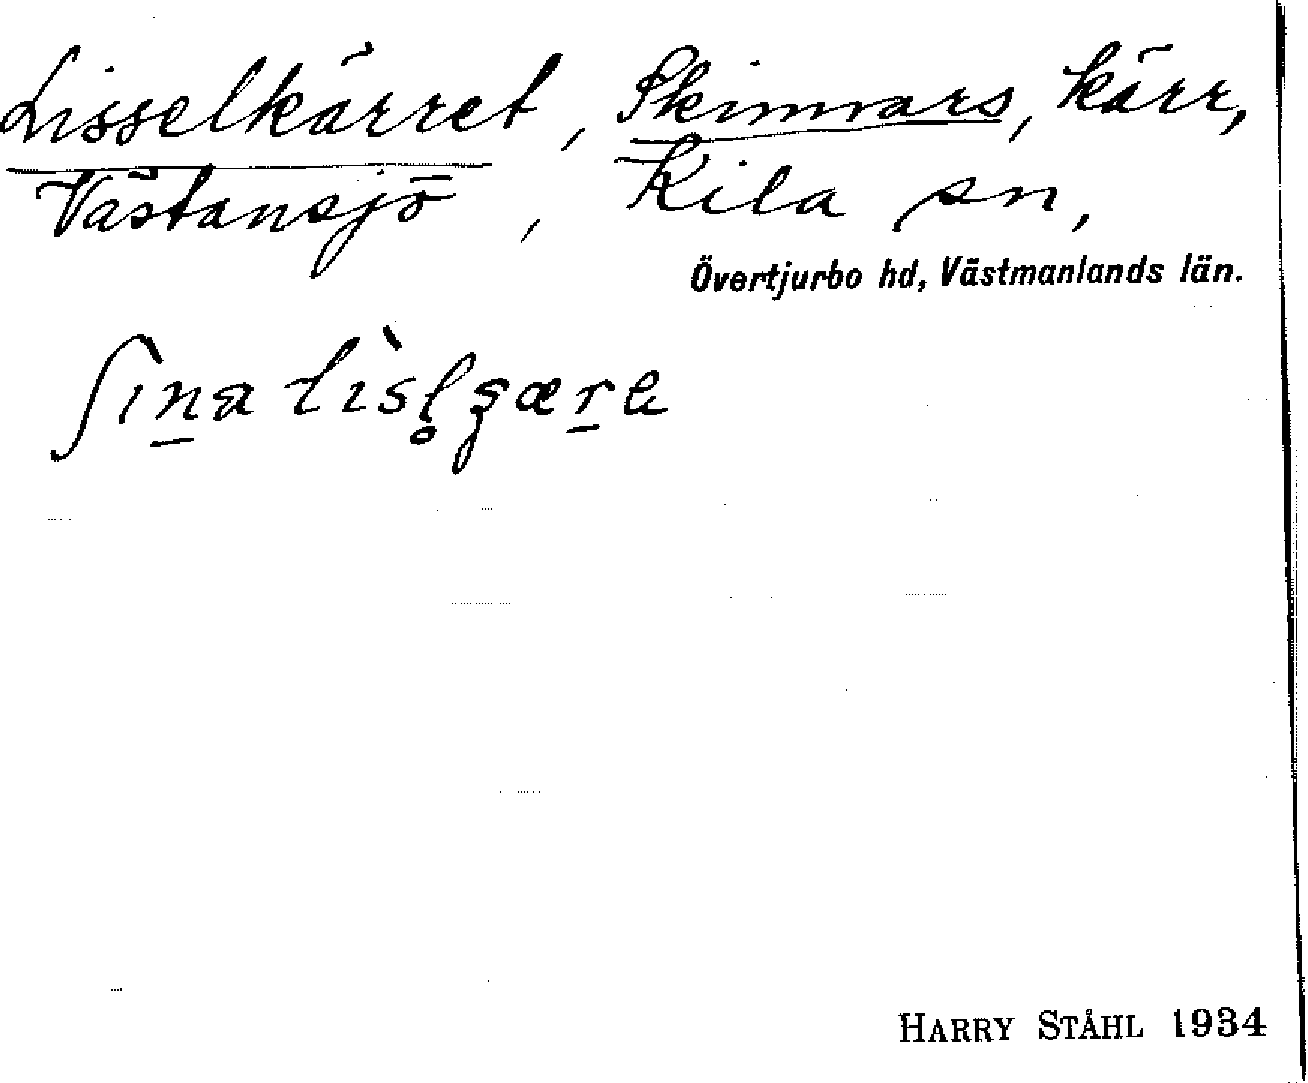 Lisselkärret, Skinnars, kärr,
Västansjö, Kila sn,
Övertjurbo hd, Västmanlands län.
HARRY STÅHL 1934